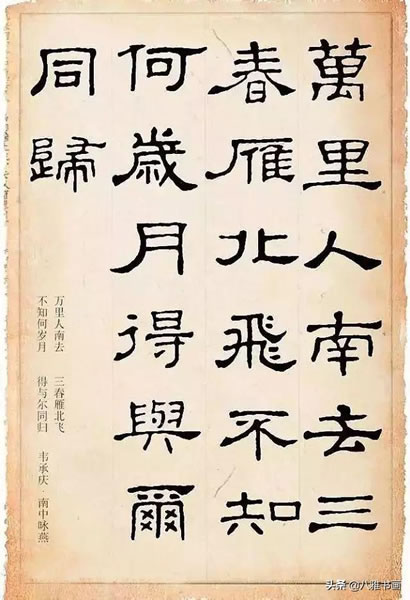 萬里人南去三
春雁北飛不知
何歲月得與爾
同歸
万里人南去 三春雁北飞
不知何岁月 得与尔同归 韦承庆·南中咏燕
头条@八雅书画